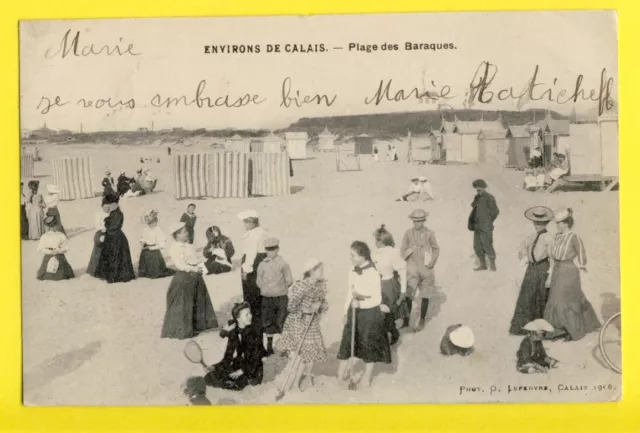 Marie
ENVIRONS DE CALAIS. — Plage des Baraques.
je vous embrasse bien Marie
PHOT. D. LEFEBVRE, CALAIS